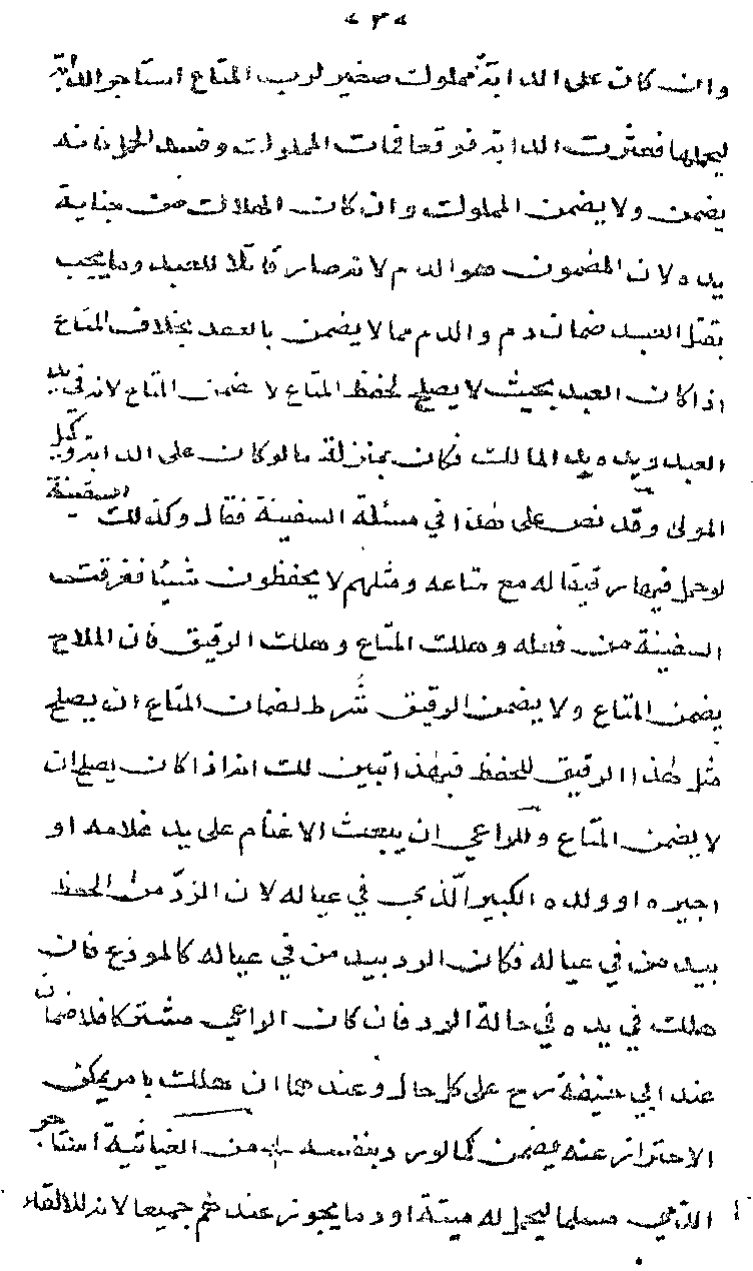 ٤٣٨
وان كان على الدابة مملوك صغير لرب المتاع استاجر الدابة
ليحملها فعثرت الدابة فوقعا فمات المملوك وفسد الحمل فانه
يضمن ولا يضمن المملوك وان كان الهلاك من جناية
يده لان المضمون هو الدم لانه صار قاتلا للعبد وما يجب
بقتل العبد ضمان دم والدم مما لا يضمن بالعقد بخلاف المتاع
اذا كان العبد بحيث لا يصلح لحفظ المتاع لا ضمن المتاع لانه في يد
العبد ويده يد المالك فكان بمنزلة ما لو كان على الدابة وكيل
المولى وقد نص على هذا في مسئلة السفينة فقال وكذلك السفينة
لو حمل فيها رقيقا له مع متاعه ومثلهم لا يحفظون شيئا فغرقت
السفينة من فعله وهلك المتاع وهلك الرقيق فان الملاح
يضمن المتاع ولا يضمن الرقيق شرط لضمان المتاع ان يصلح
مثل هذا الرقيق للحفظ فبهذا تبين لك انه اذا كان يصلح ان
لا يضمن المتاع وللراعي ان يبعث الاغنام على يد غلامه او
اجيره او ولده الكبير الذي في عياله لان الرد من الحفظ
بيد من في عياله فكان الرد بيد من في عياله كالمودع فان
هلك في يده في حالة الرد فان كان الراعي مشتركا فلا ضمان
عند ابي حنيفة رح على كل حال وعندهما ان هلك بامر يمكن
الاحتراز عنه يضمن كما لو رد بنفسه من الغياثية استاجر
الذمي مسلما ليحمل له ميتة او دما يجوز عندهم جميعا لانه للالقاء